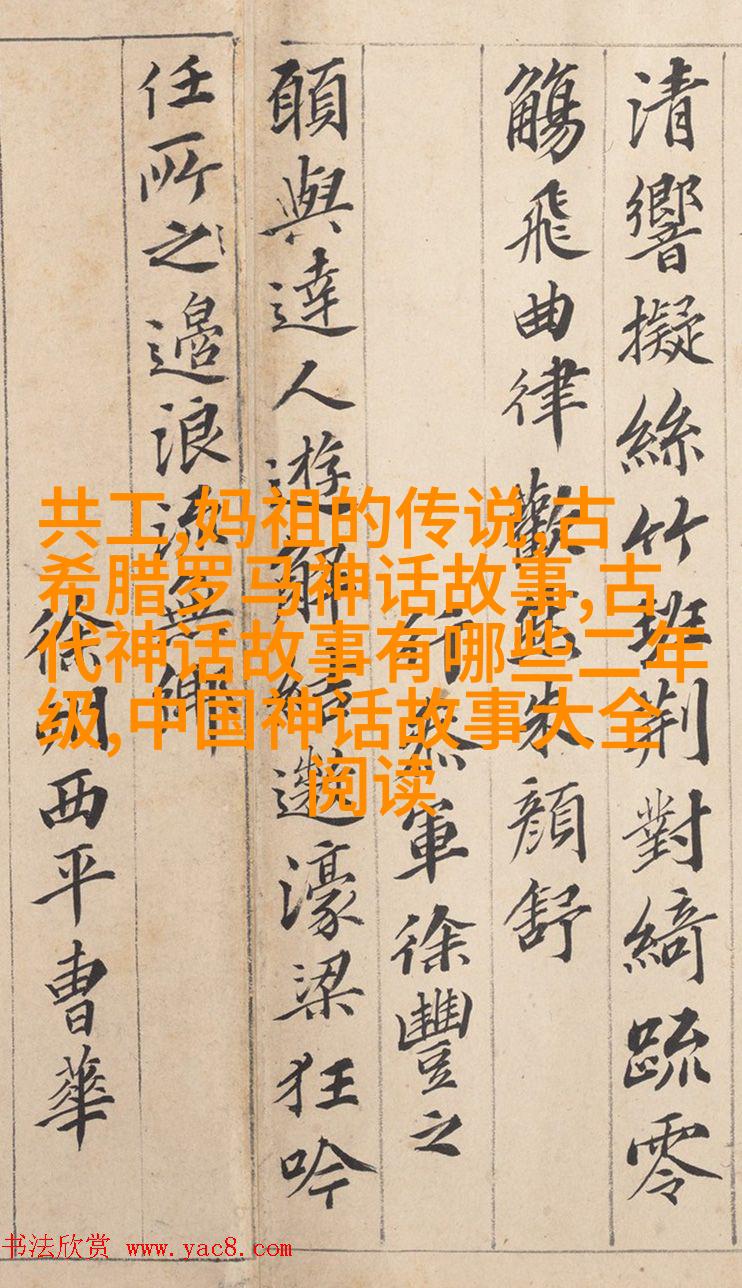 共工,妈祖的传说,古
希腊罗马神话故事,古
代神话故事有哪些二年
级,中国神话故事大全
阅读
清響擬絲竹班荆對綺疏零
觴飛曲律歡然朱顏舒
行叅軍徐豐之
願與達人遊解結遨濠梁狂吟
任所之浪無鄉
徐州西平曹華
书法欣赏 www.yac8.com